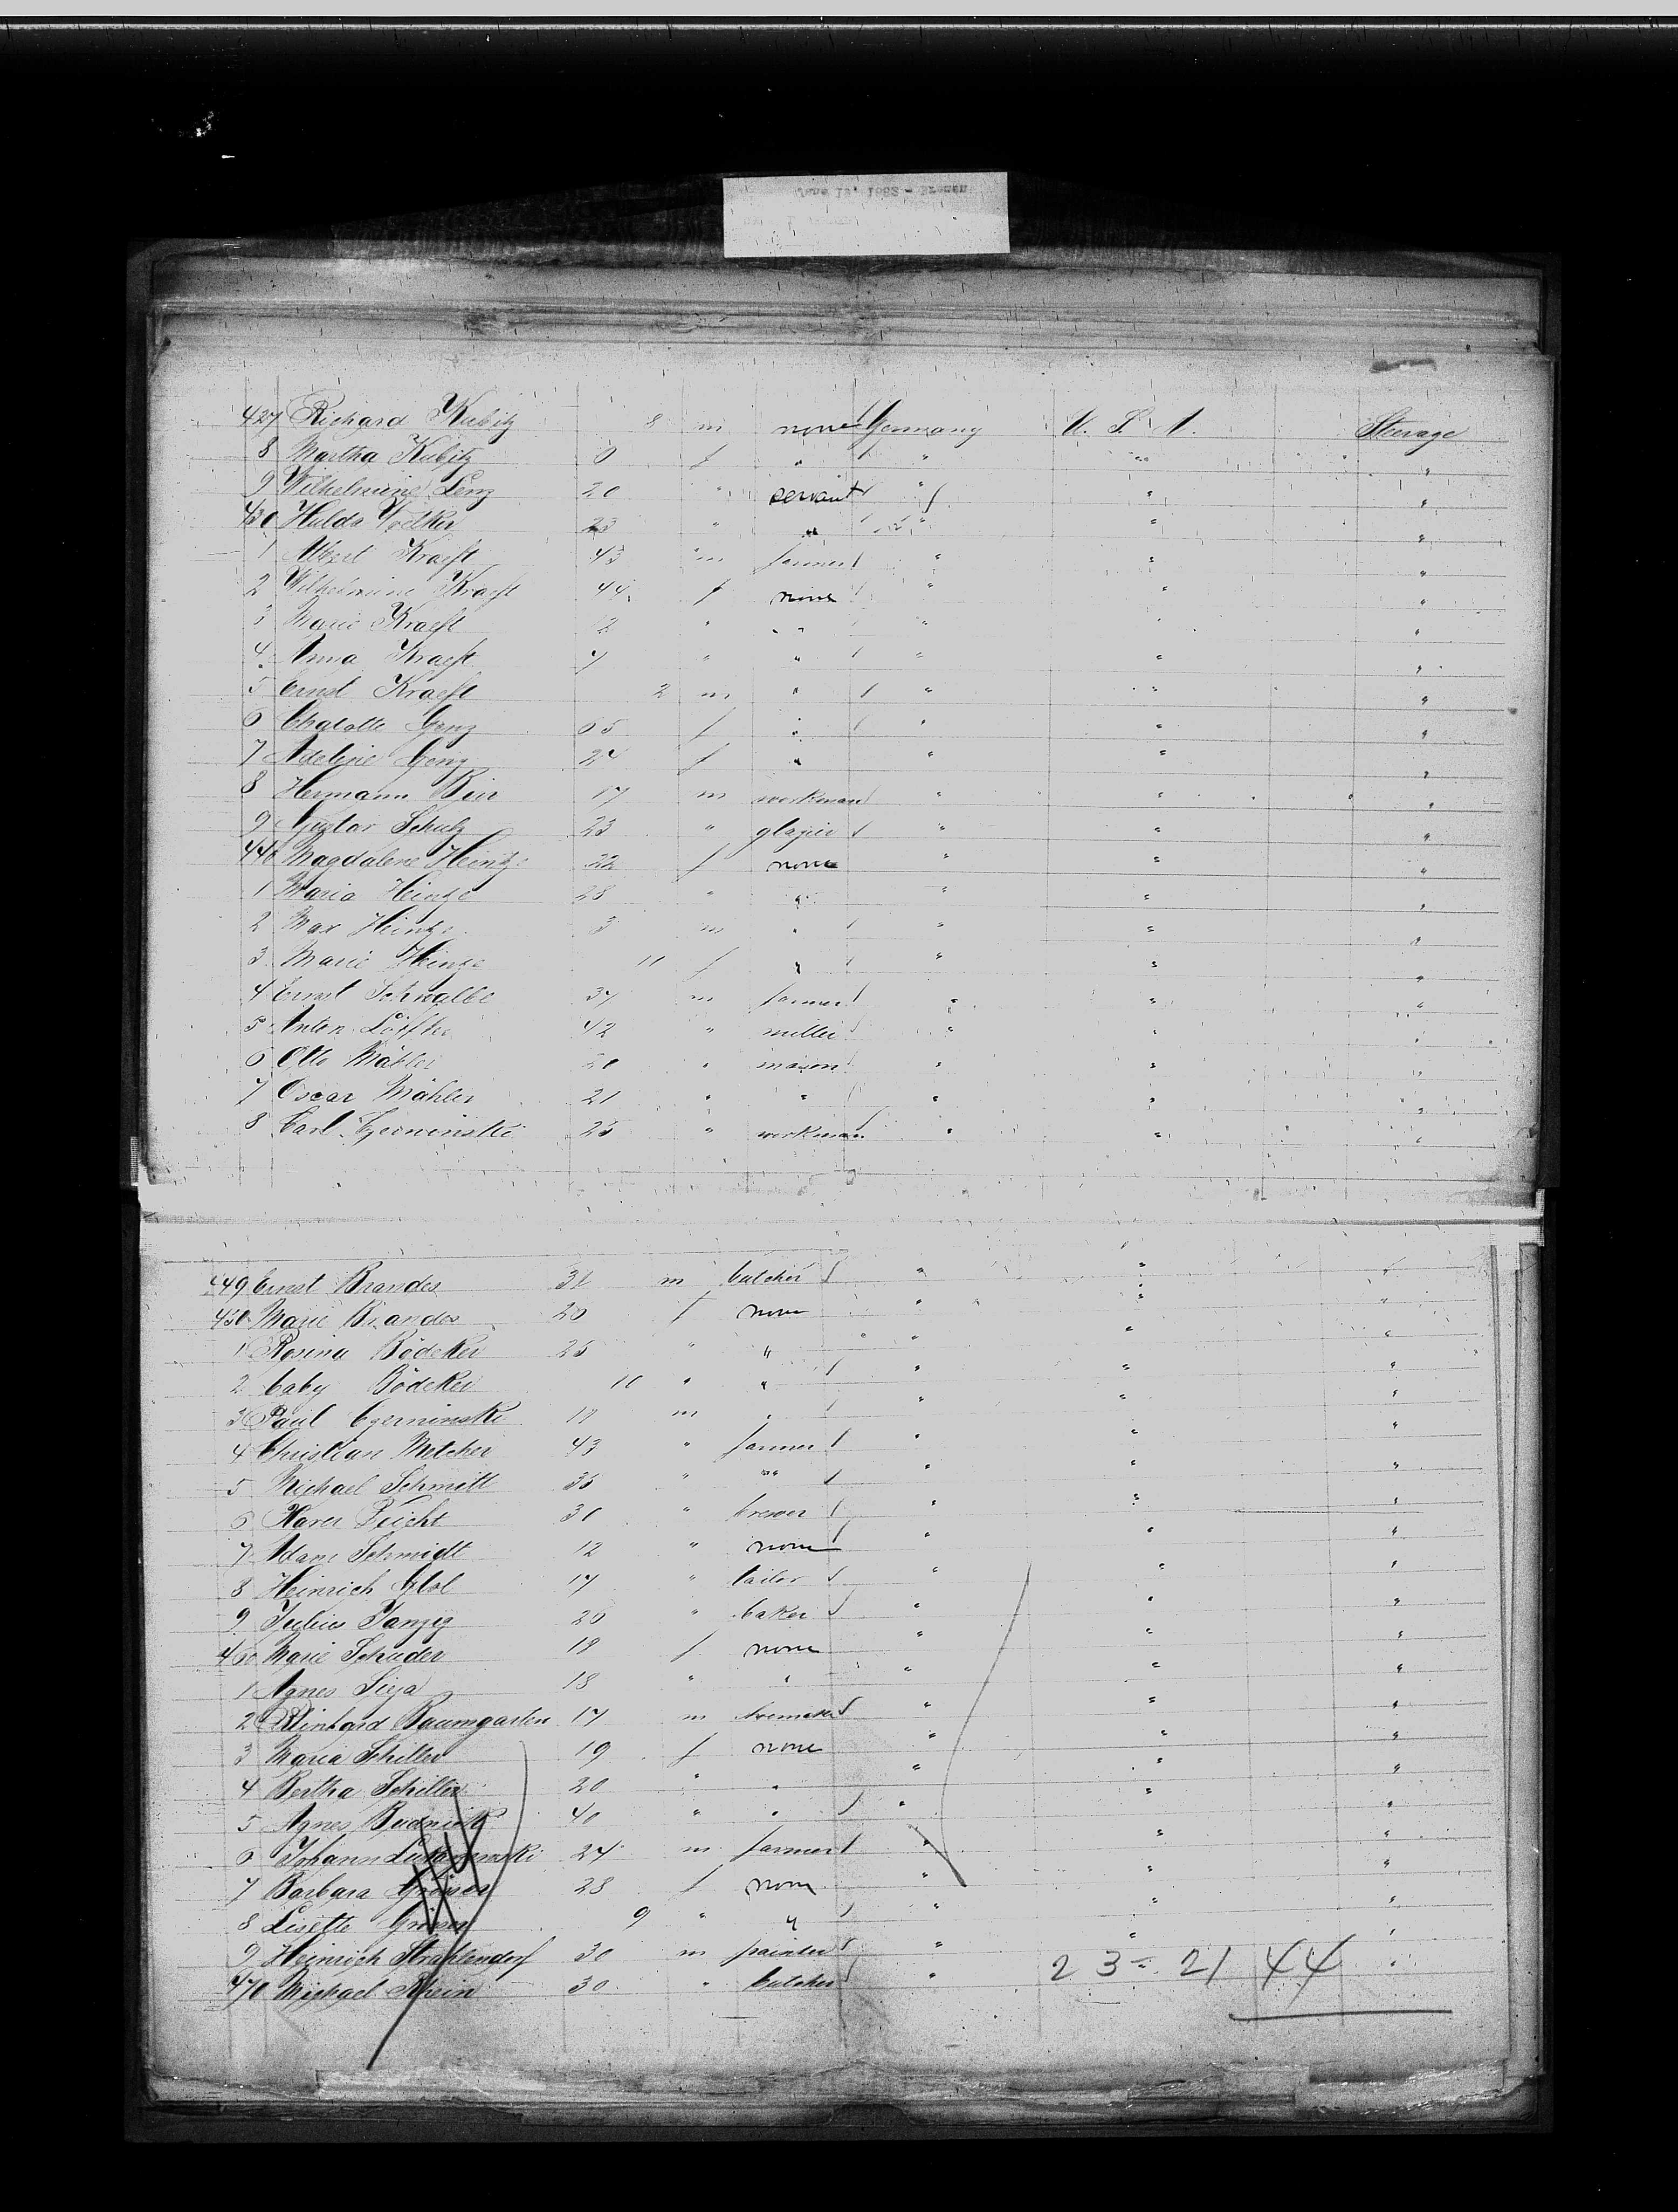 June 12, 1882 - Bremen
427 Richard Kubitz 8 m none Germany U. S. A. Steerage
8 Martha Kubitz 0 f " " " "
9 Wilhelmine Lenz 20 " servant " " "
430 Hulda Voelker 23 " " " " "
1 Albert Kraeft 43 m farmer " " "
2 Wilhelmine Kraeft 44 f none " " "
3 Marie Kraeft " " " " "
4 Anna Kraeft 7 " " " " "
5 Ernst Kraeft 2 m " " " "
6 Chalotte Genz 65 f " " " "
7 Adeline Genz 24 f " " " "
8 Hermann Bier 17 m workman " " "
9 Gustav Schulz 23 " glazier " " "
440 Magdalene Heintze 22 f none " " "
1 Maria Heintze 28 " " " " "
2 Max Heintze 3 m " " " "
3 Marie Heinze 11 f " " " "
4 Ernst Schwalbe 37 m farmer " " "
5 Anton Löffler 42 " miller " " "
6 Otto Mähler 20 " mason " " "
7 Oscar Mähler 21 " " " " "
8 Carl 25 " workman " " "
449 Ernst Brandes 31 m butcher " " "
450 Marie Brandes 20 f none " " "
1 Rosina Bödeker 25 " " " " "
2 baby Bödeker 10 " " " " "
3 Paul Czerninski 17 m " " " "
4 Christian Melcher 43 " farmer " " "
5 Michael Schmitt 36 " " " " "
6 Xaver Feicht 30 " brewer " " "
7 Adam Schmidt 12 " none " " "
8 Heinrich 17 " tailor " " "
9 Julius Tanzig 20 " baker " " "
460 Marie Schuder 19 f none " " "
1 Agnes Sieja 18 " " " " "
2 Reinhard Baumgarten 17 m " " "
3 Maria Schiller 19 f none " " "
4 Bertha Schiller 20 " " " " "
5 Agnes 40 " " " " "
6 Johann 24 m farmer " " "
7 Barbara 23 f none " " "
8 Lisette 9 " " " " "
9 Heinrich Strahlendorf 30 m painter " " "
470 Michael Rhein 30 " butcher " "
23 - 21 44